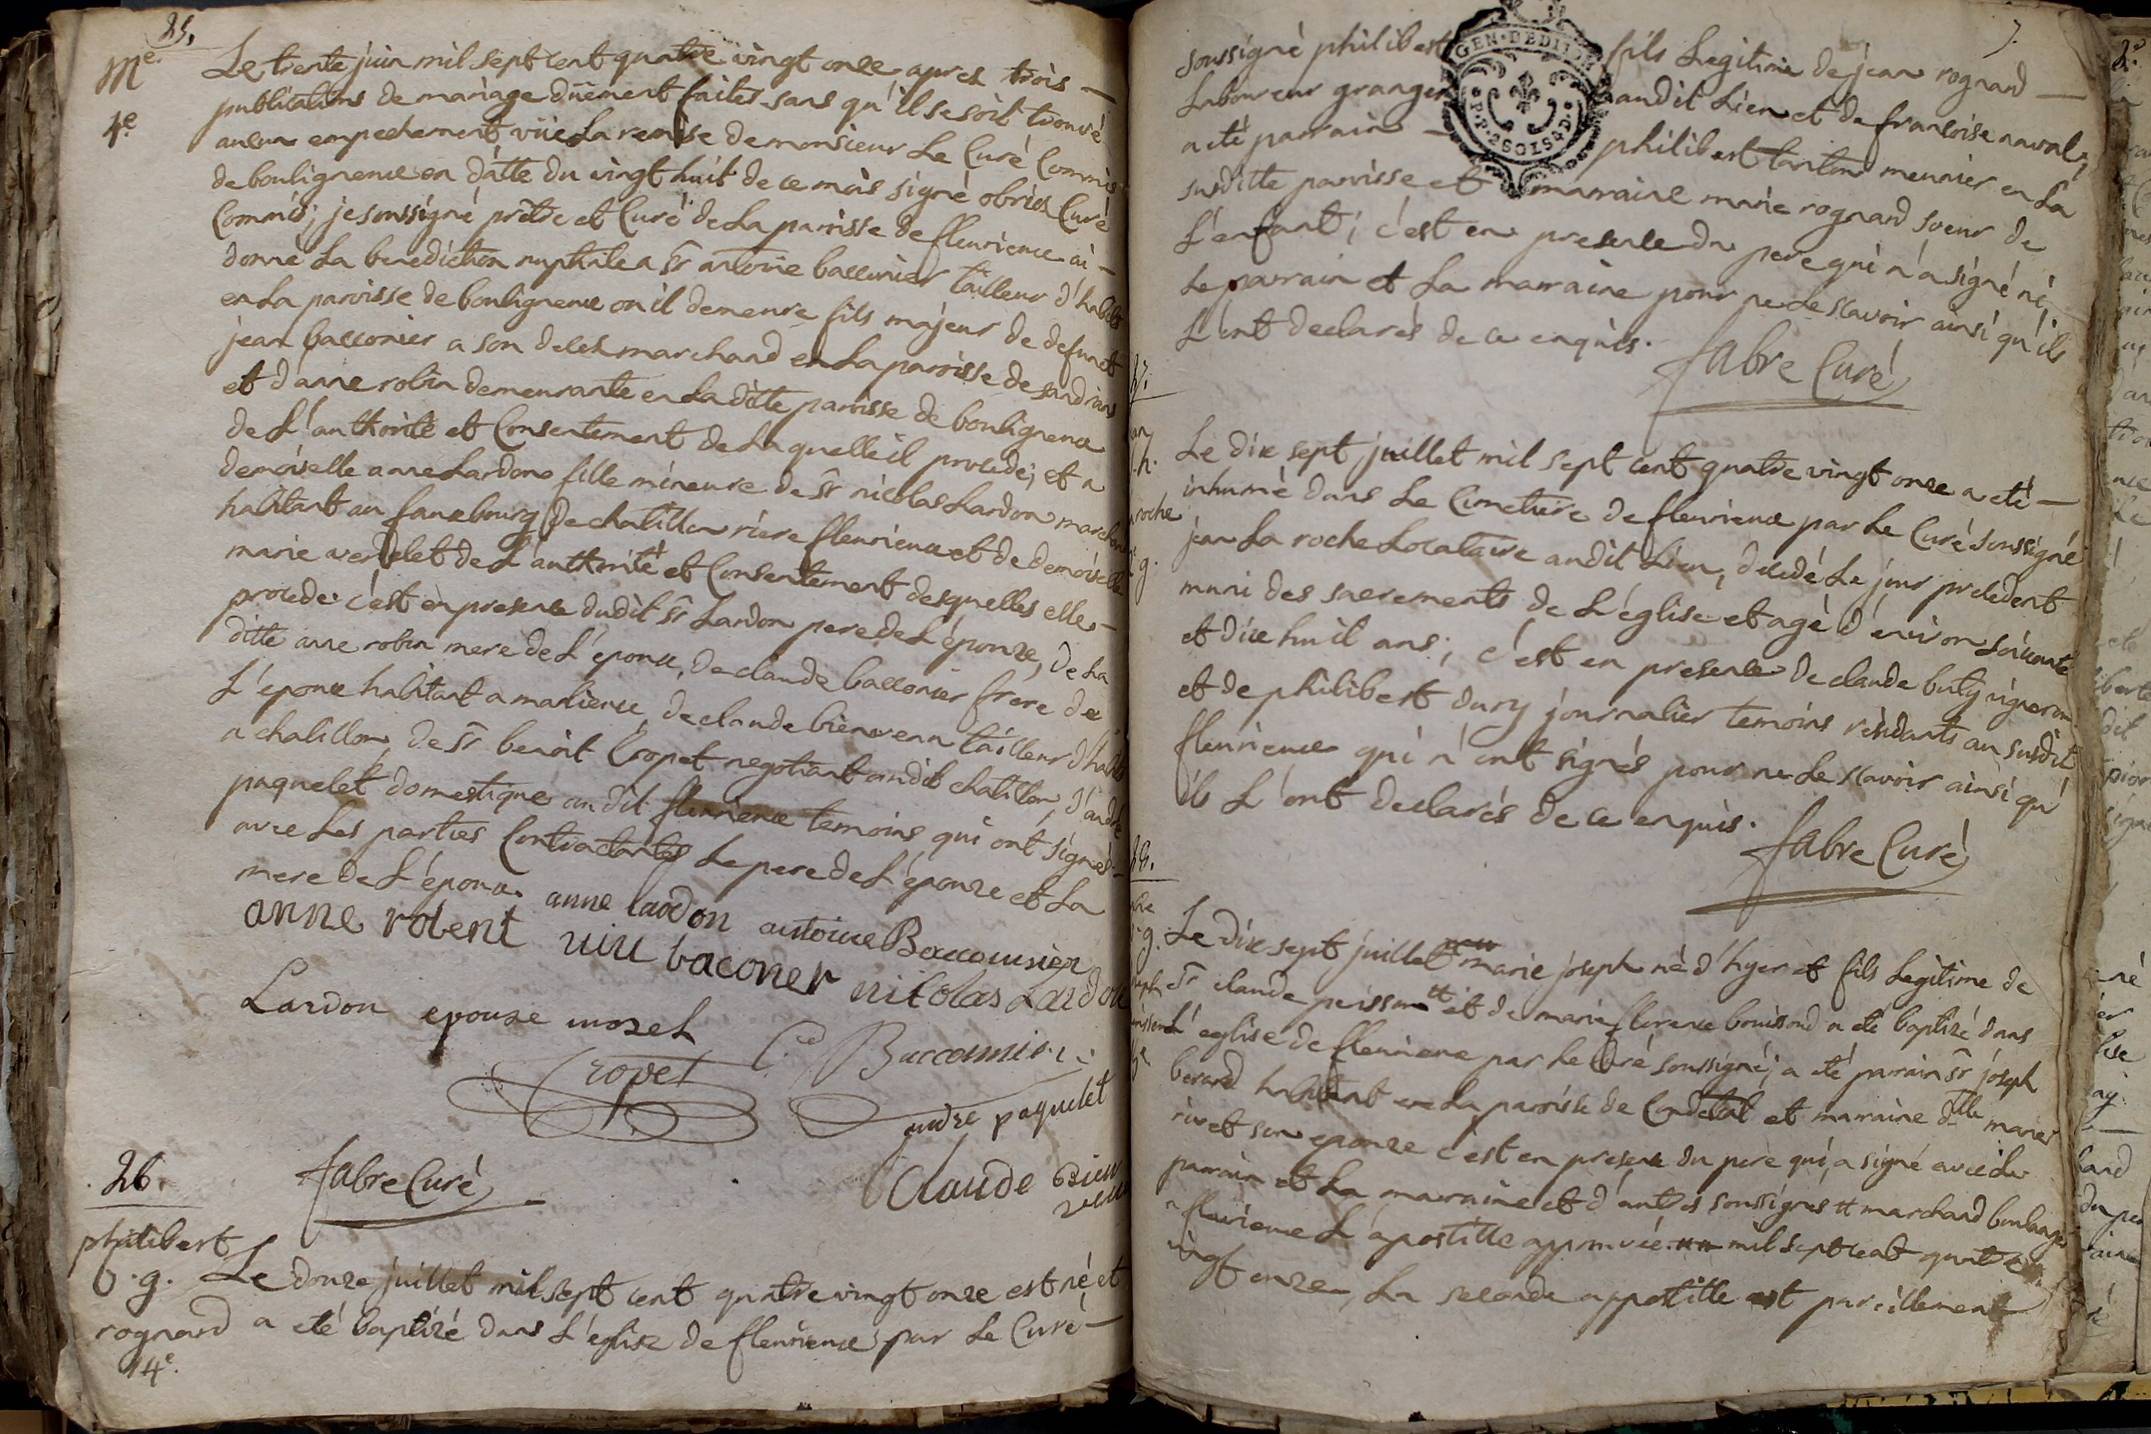 25.
Me.
4e.
Le trente juin mil sept cent quatre vingt onze apres trois
publications de mariage düement faites sans qu'il se soit trouvé
aucun empechement vüe La remise de monsieur Le Curé Commis
de bouligneux en datte du vingt huit de ce mois signé obrier Curé
Commis; je soussigné prêtre et Curé de La paroisse de fleurieux ai
donné La benediction nuptiale a Sr antoine bacconier tailleur d'habits
en La paroisse de bouligneux ou il demeure fils majeur de defunct
jean bacconier a son deces marchand en La paroisse de sandrans
et d'anne robin demeurante en La ditte paroisse de bouligneux
de L'authorité et Consentement de Laquelle il procede; et a
demoiselle anne Lardon fille mineure de Sr nicolas Lardon marchand
habitant au fauxbourg de chatillon riere fleurieux et de demoiselle
marie verdelet de L'authorité et Consentement desquelles elle
procede. c'est en presence dudit Sr Lardon pere de L'épouze, de La
ditte anne robin mere de L'époux, de claude bacconier frere de
L'époux habitant a marlieux, de claude bienvenu tailleur d'habits
a chatillon, de Sr benoit Cropet negotiant audit chatillon, d'andré
paquelet domestique audit fleurieux temoins qui ont signés
avec Les parties Contractantes Le pere de L'épouze et La
mere de L'époux. anne lardon antoine Bacconnier
anne robent viu baconer nicolas Lardon
Lardon epouze morel
Cropet Cd Bacconnier
andre paquelet
fabre Curé
Claude Bien
venu
26.
philibert
b.g.
rognard
14e.
Le douze juillet mil sept cent quatre vingt onze est né et
a eté baptizé dans L'eglise de fleurieux par Le Curé
7.
GEN. DE DIJON
P.P. 2 SOLS 4 D.
soussigné philibert fils Legitime de jean rognard
Laboureur granger audit Lieu et de francoise naval;
a eté parrain philibert tonton meunier en La
susditte paroisse et marraine marie rognard soeur de
L'enfant; c'est en presence du pere qui n'a signé ni
Le parrain et La marraine pour ne Le scavoir ainsi qu'ils
L'ont declarés de ce enquis.
fabre Curé
27.
roche
Le dix sept juillet mil sept cent quatre vingt onze a eté
inhumé dans Le Cimetiere de fleurieux par Le Curé soussigné
jean La roche Locataire audit Lieu, decedé Le jour precedent
muni des sacrements de L'église et agé d'environ soixante
et dix huit ans; c'est en presence de claude buty vigneron
et de philibert dury journalier temoins residants au susdit
fleurieux qui n'ont signés pour ne Le scavoir ainsi qu'
ils L'ont declarés de ce enquis.
fabre Curé
28.
Le dix sept juillet marie joseph né d'hyer et fils Legitime de
Sr claude poisson # et de marie florence bouissoud a eté baptizé dans
L'eglise de fleurieux par Le Curé soussigné; a eté parrain Sr joseph
berard habitant en La paroisse de Condeissiat et marraine dlle marie
rivet son epouze c'est en presence du pere qui a signé avec Le
parrain et La marraine et d'autres soussignés # marchand boulanger
a fleurieux L'apostille approuvée. mil sept cent quatre
vingt onze, La seconde appostille est pareillement